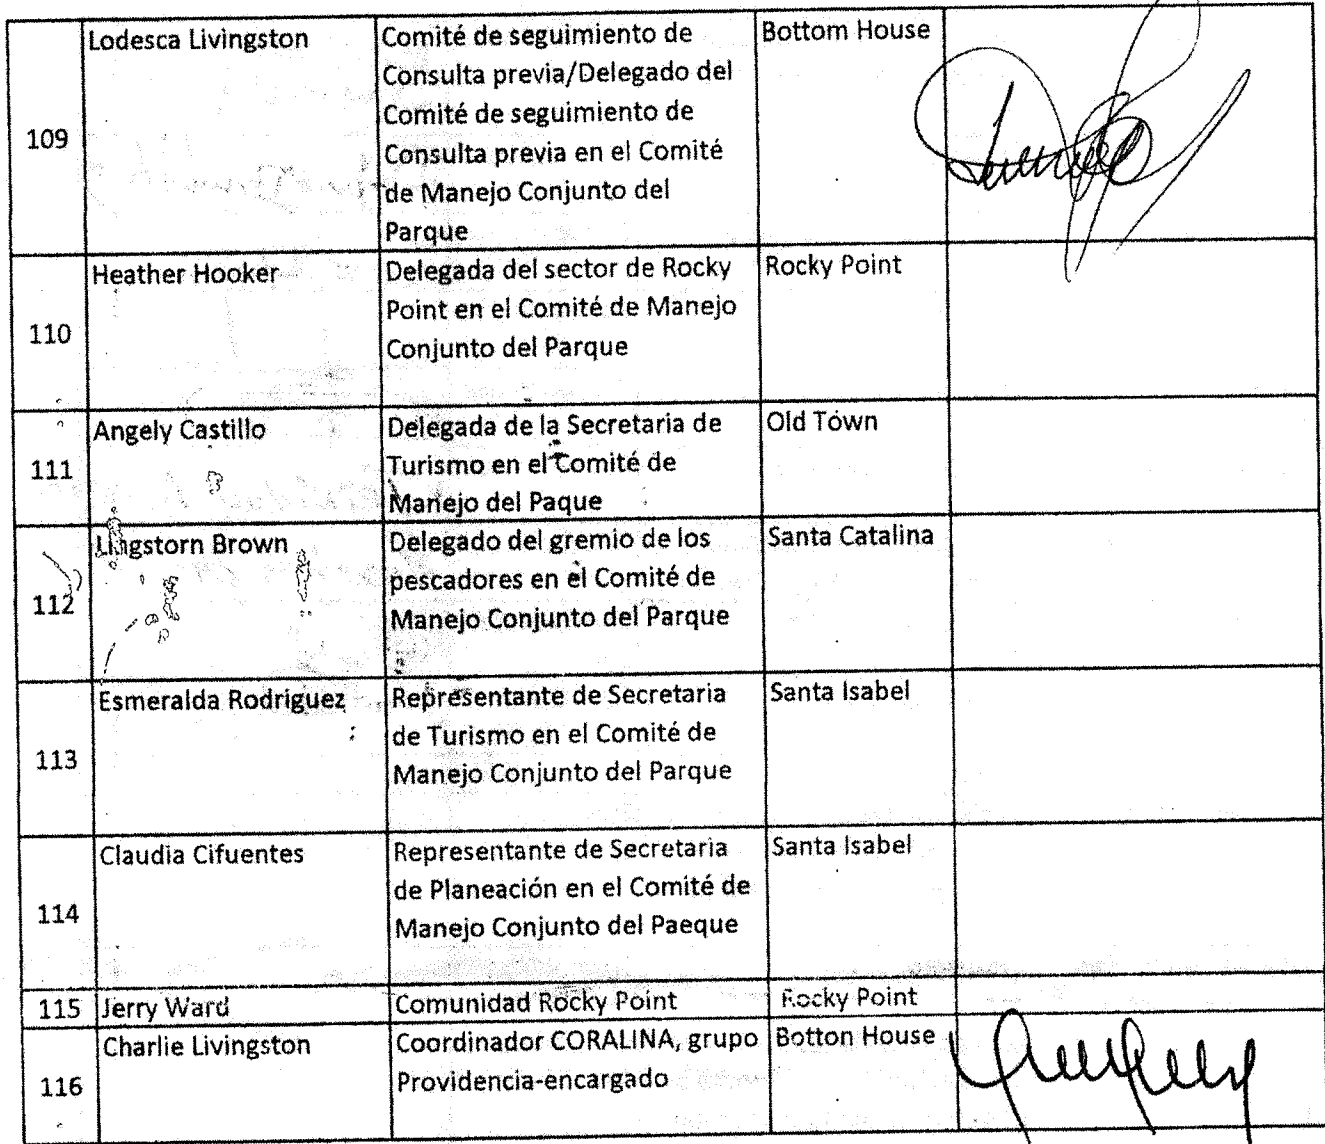 109
Lodesca Livingston
Comité de seguimiento de
Consulta previa/Delegado del
Comité de seguimiento de
Consulta previa en el Comité
de Manejo Conjunto del
Parque
Bottom House
110
Heather Hooker
Delegada del sector de Rocky
Point en el Comité de Manejo
Conjunto del Parque
Rocky Point
111
Angely Castillo
Delegada de la Secretaria de
Turismo en el Comité de
Manejo del Paque
Old Town
112
Lingstorn Brown
Delegado del gremio de los
pescadores en el Comité de
Manejo Conjunto del Parque
Santa Catalina
113
Esmeralda Rodriguez
Representante de Secretaria
de Turismo en el Comité de
Manejo Conjunto del Parque
Santa Isabel
114
Claudia Cifuentes
Representante de Secretaria
de Planeación en el Comité de
Manejo Conjunto del Paeque
Santa Isabel
115
Jerry Ward
Comunidad Rocky Point
Rocky Point
116
Charlie Livingston
Coordinador CORALINA, grupo
Providencia-encargado
Botton House